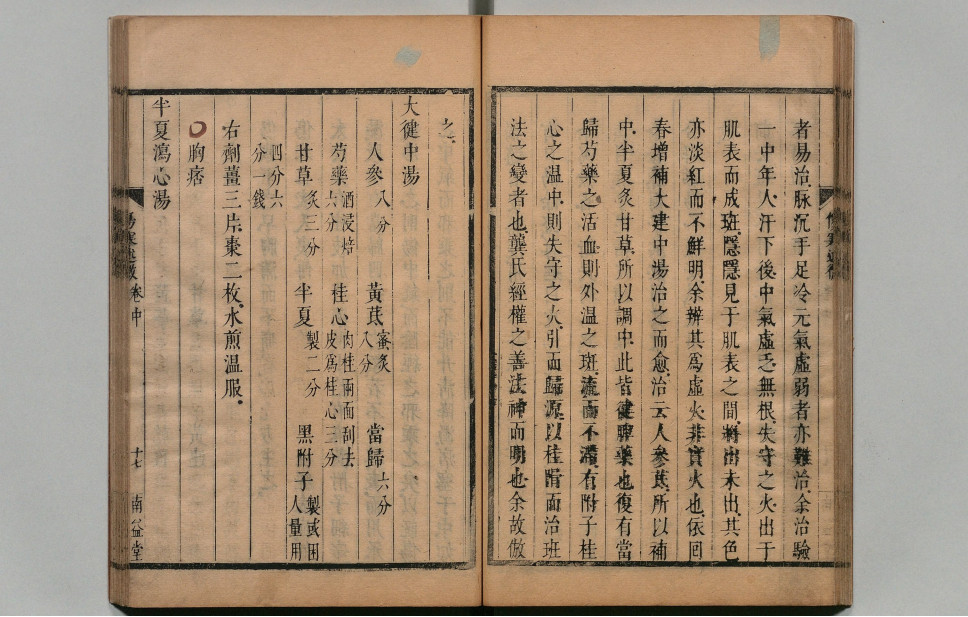 者易治脉沉手足冷元氣虛弱者亦難治余治驗
一中年人汗下後中氣虛乏無根失守之火出于
肌表而成斑隱隱見于肌表之間將出未出其色
亦淡紅而不鮮明余辨其爲虛火非實火也依回
春增補大建中湯治之而愈治云人參芪所以補
中半夏炙甘草所以調中此皆健脾藥也復有當
歸芍藥之活血則外温之斑流而不滯有附子桂
心之温中則失守之火引而歸源以桂附而治班
法之變者也龔氏經權之善法神而明也余故倣
之
大徤中湯
人參八分 黃芪蜜炙八分 當歸六分
芍藥酒浸焙六分 桂心肉桂兩面刮去皮爲桂心三分
甘草炙三分 半夏製二分 黑附子製或因人量用
四分六分一錢
右劑薑三片棗二枚水煎温服
胸痞
半夏瀉心湯
卷中 十七 南益堂